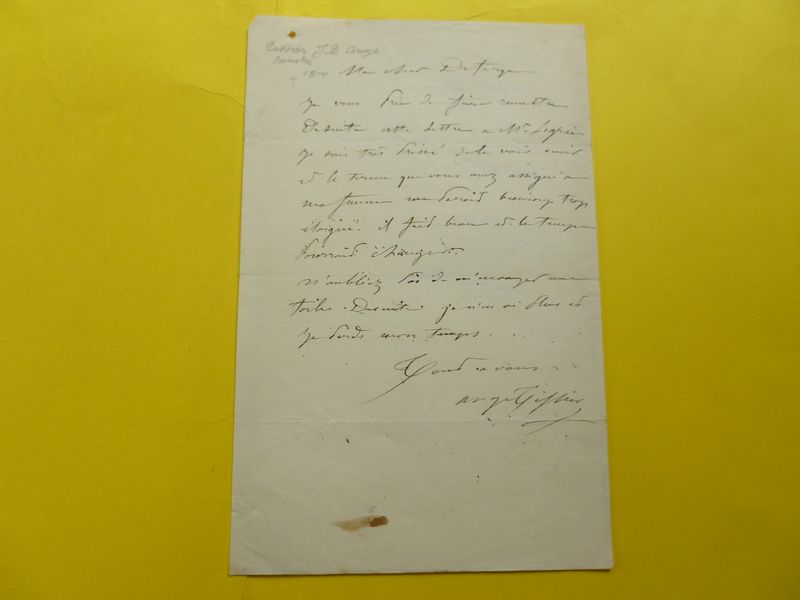 Tissier J B Ange
peintre
+ 1814
Mon cher Deforge
Je vous prie de faire remettre
Desuite cette lettre a Mr
Je suis très pressé de le voir
et le terme que vous avez assigné a
ma femme me serait beaucoup trop
éloigné. il fait beau et le temps
pourrait changer.
N'oubliez pas de m'envoyer une
toile. Desuite je n'en ai plus et
Je perds mon temps.
Tout a vous
Ange Tissier